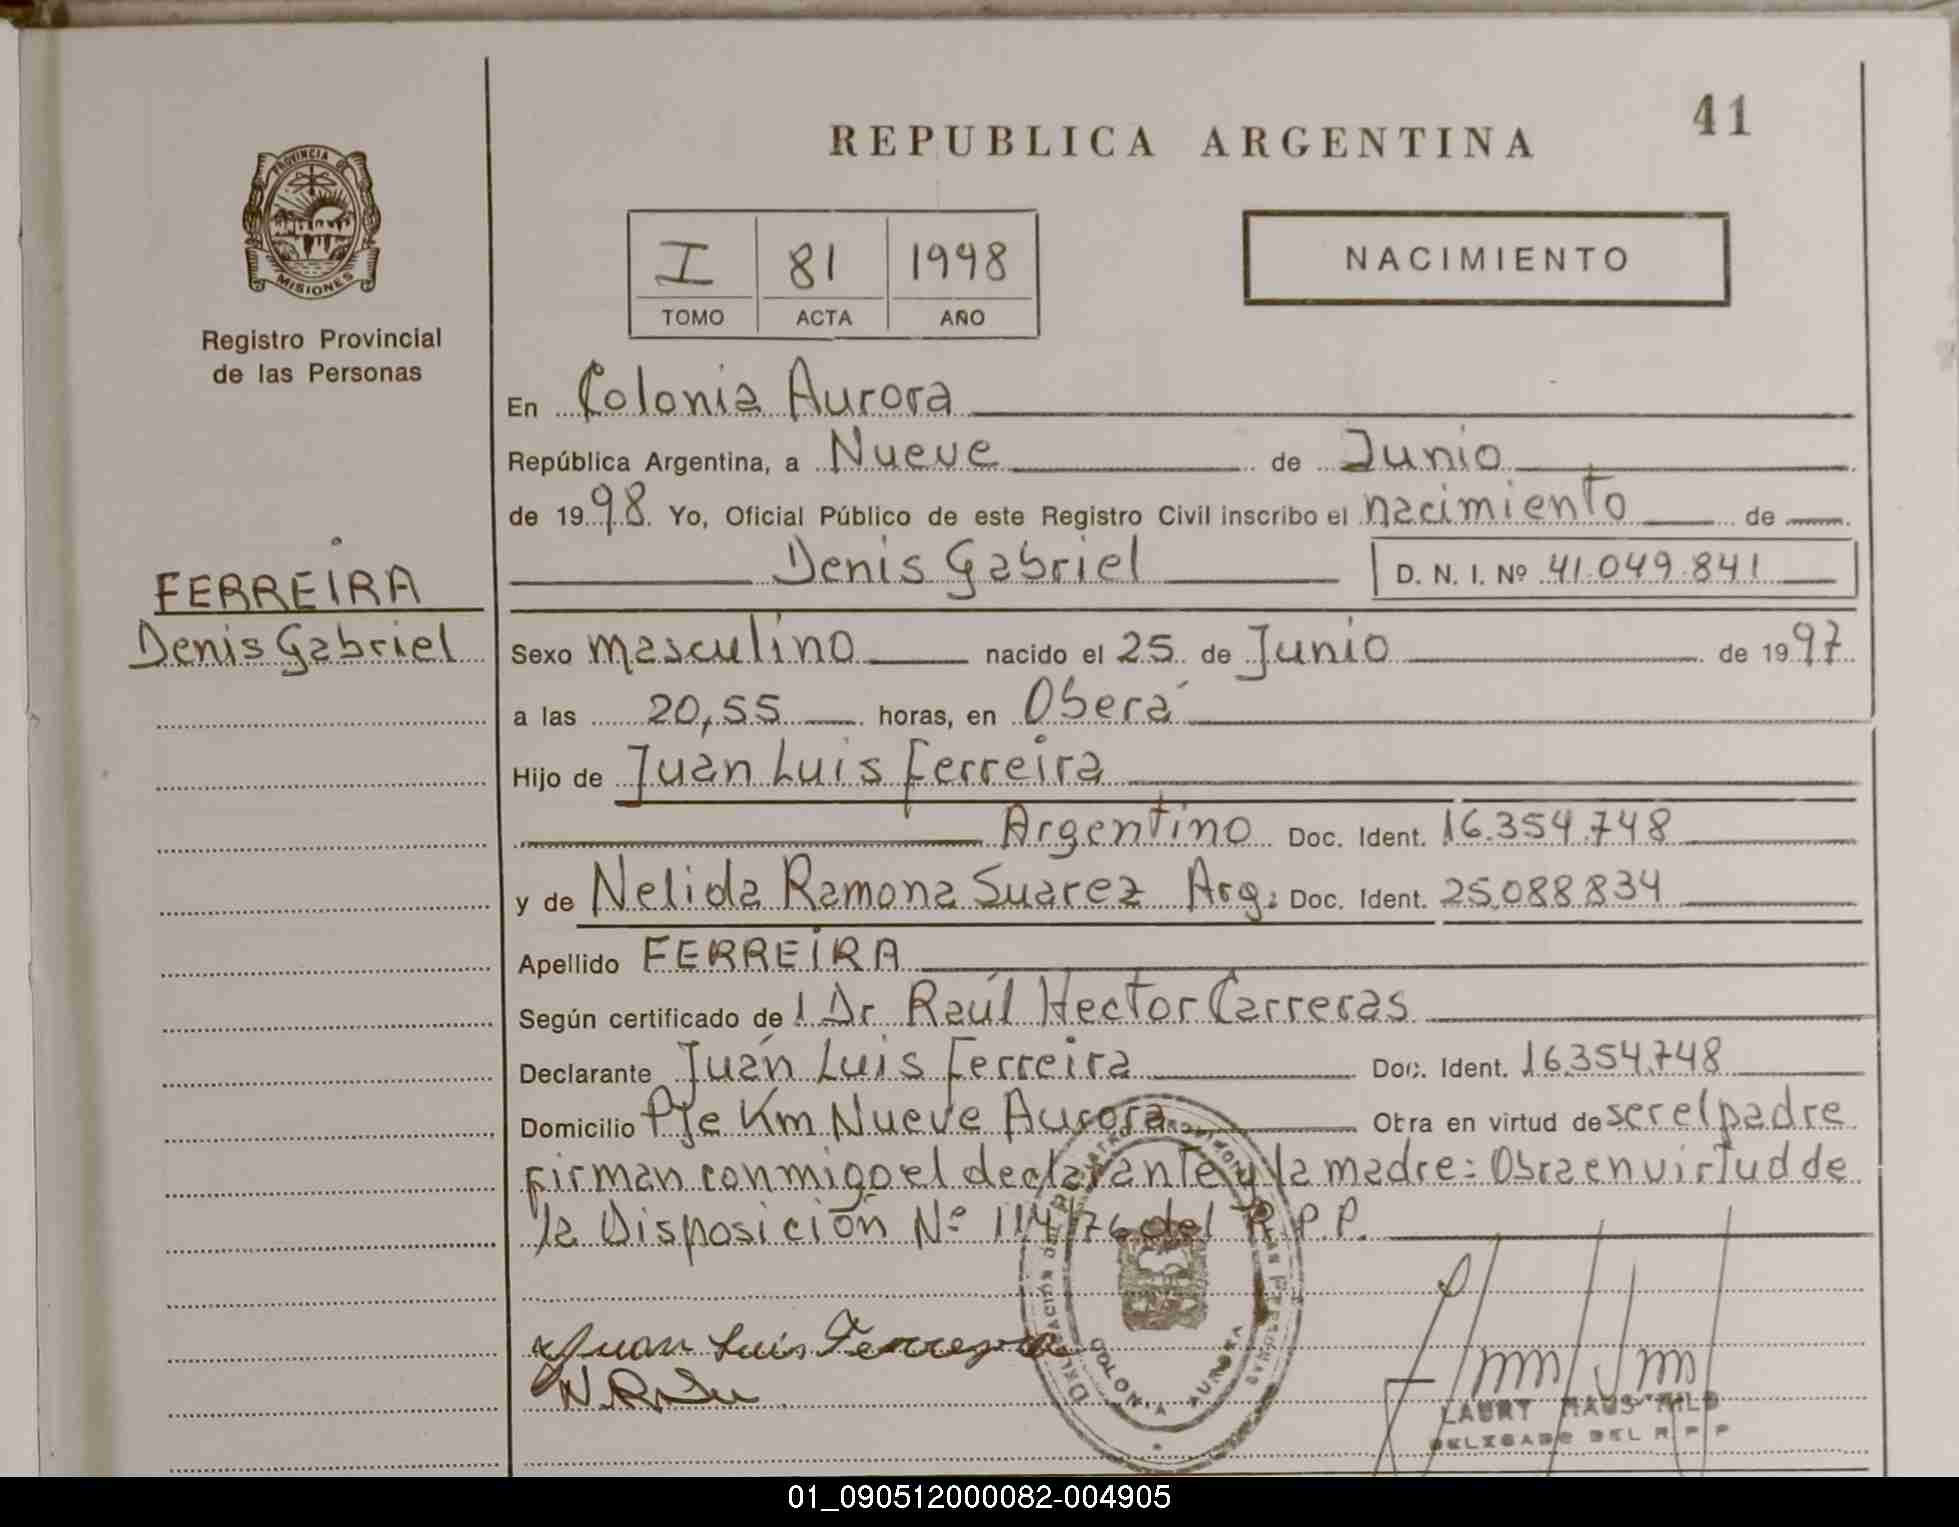 41
REPUBLICA ARGENTINA
PROVINCIA DE
MISIONES
Registro Provincial
de las Personas
I 81 1998
TOMO ACTA AÑO
NACIMIENTO
En Colonia Aurora
República Argentina, a Nueve de Junio
de 1998. Yo, Oficial Público de este Registro Civil inscribo el nacimiento de
Denis Gabriel D. N. I. Nº 41.049.841
FERREIRA
Denis Gabriel
Sexo masculino nacido el 25 de Junio de 1997
a las 20,55 horas, en Oberá
Hijo de Juan Luis Ferreira
Argentino Doc. Ident. 16.354.748
y de Nelida Ramona Suarez Arg: Doc. Ident. 25.088.834
Apellido FERREIRA
Según certificado de l Dr Raúl Hector Carreras
Declarante Juan Luis Ferreira Doc. Ident. 16.354.748
Domicilio Pje Km Nueve Aurora Obra en virtud de ser el padre
Firman conmigo el declarante y la madre: Obra en virtud de
la Disposición Nº 114/76 del R.P.P.
Juan Luis Ferreyra
COLONIA AURORA
DELEGADO DEL R P P
01_090512000082-004905